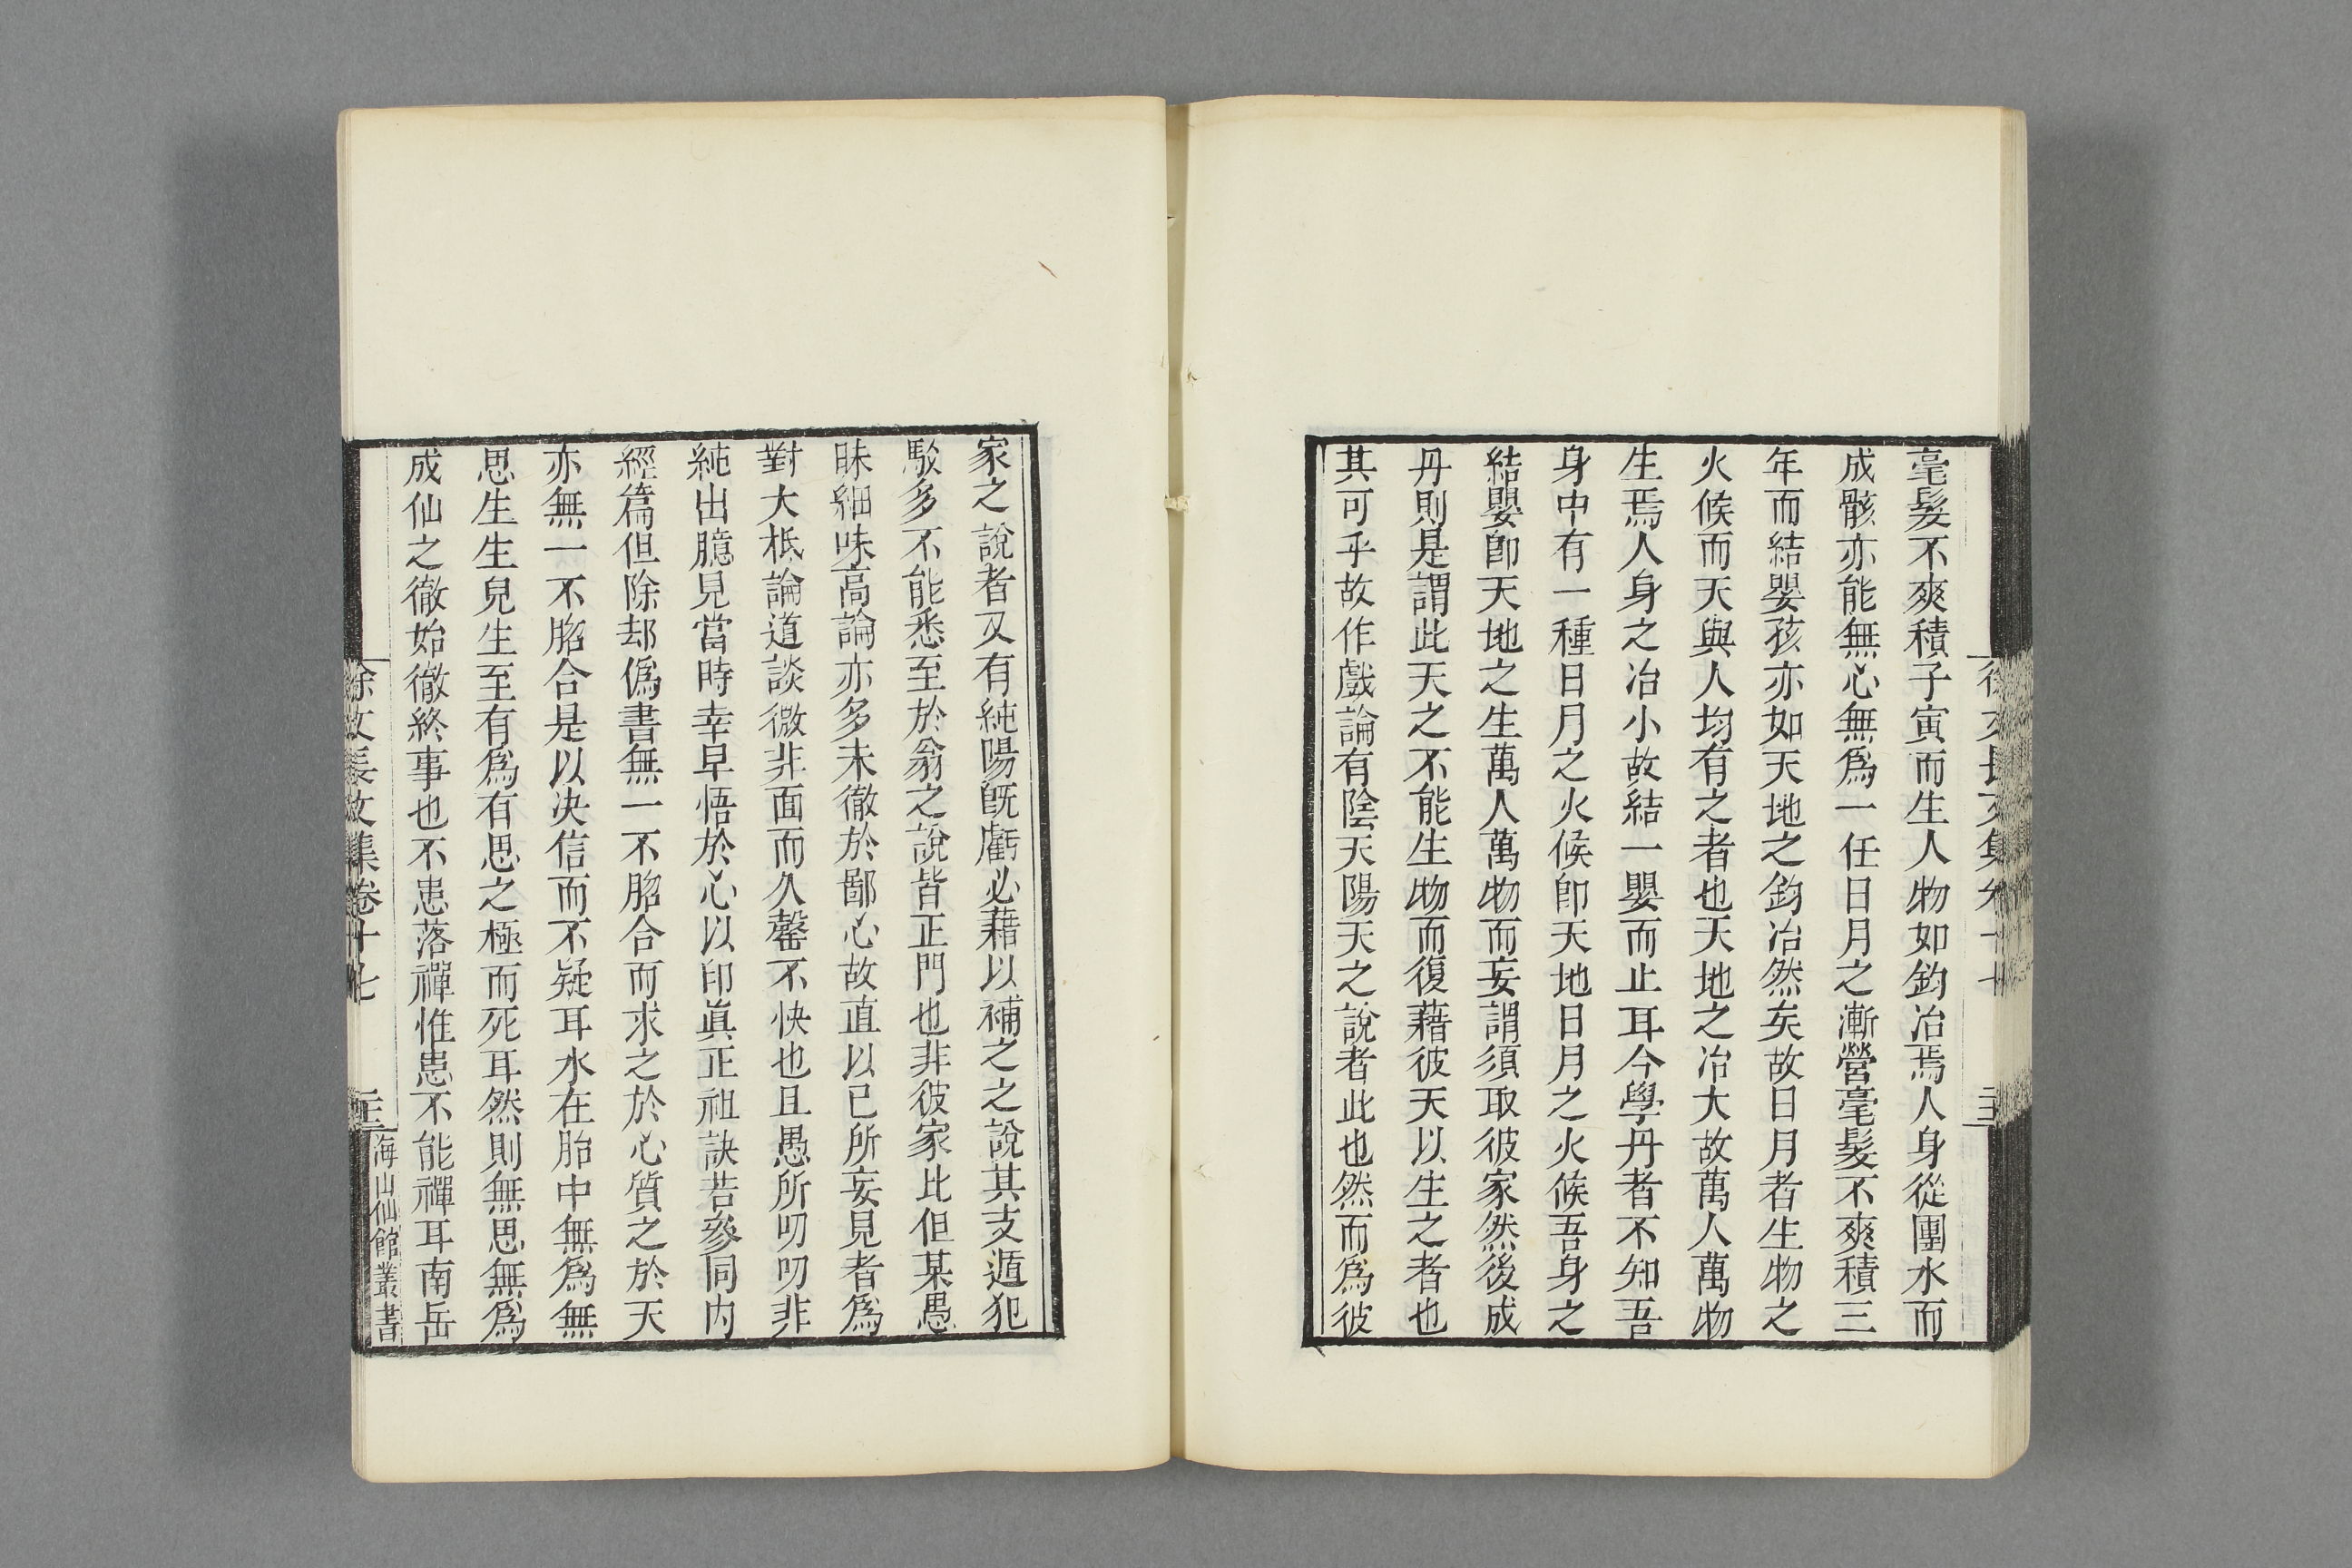 毫髮不爽積子寅而生人物如鈞冶焉人身從團水而
成骸亦能無心無爲一任日月之漸營毫髮不爽積三
年而結嬰孩亦如天地之鈞冶然矣故日月者生物之
火候而天與人均有之者也天地之冶大故萬人萬物
生焉人身之冶小故結一嬰而止耳今學丹者不知吾
身中有一種日月之火候卽天地日月之火候吾身之
結嬰卽天地之生萬人萬物而妄謂須取彼家然後成
丹則是謂此天之不能生物而復藉彼天以生之者也
其可乎故作戲論有陰天陽天之說者此也然而爲彼
家之說者又有純陽旣虧必藉以補之之說其支遁犯
駁多不能悉至於翁之說皆正門也非彼家比但某愚
昧細味高論亦多未徹於鄙心故直以已所妄見者爲
對大柢論道談微非面而久罄不快也且愚所叨叨非
純出臆見當時幸早悟於心以印眞正祖訣若參同内
經篇但除却僞書無一不脗合而求之於心質之於天
亦無一不脗合是以决信而不疑耳水在胎中無爲無
思生生兒生至有爲有思之極而死耳然則無思無爲
成仙之徹始徹終事也不患落禪惟患不能禪耳南岳
徐文長文集卷十七
海山仙館叢書